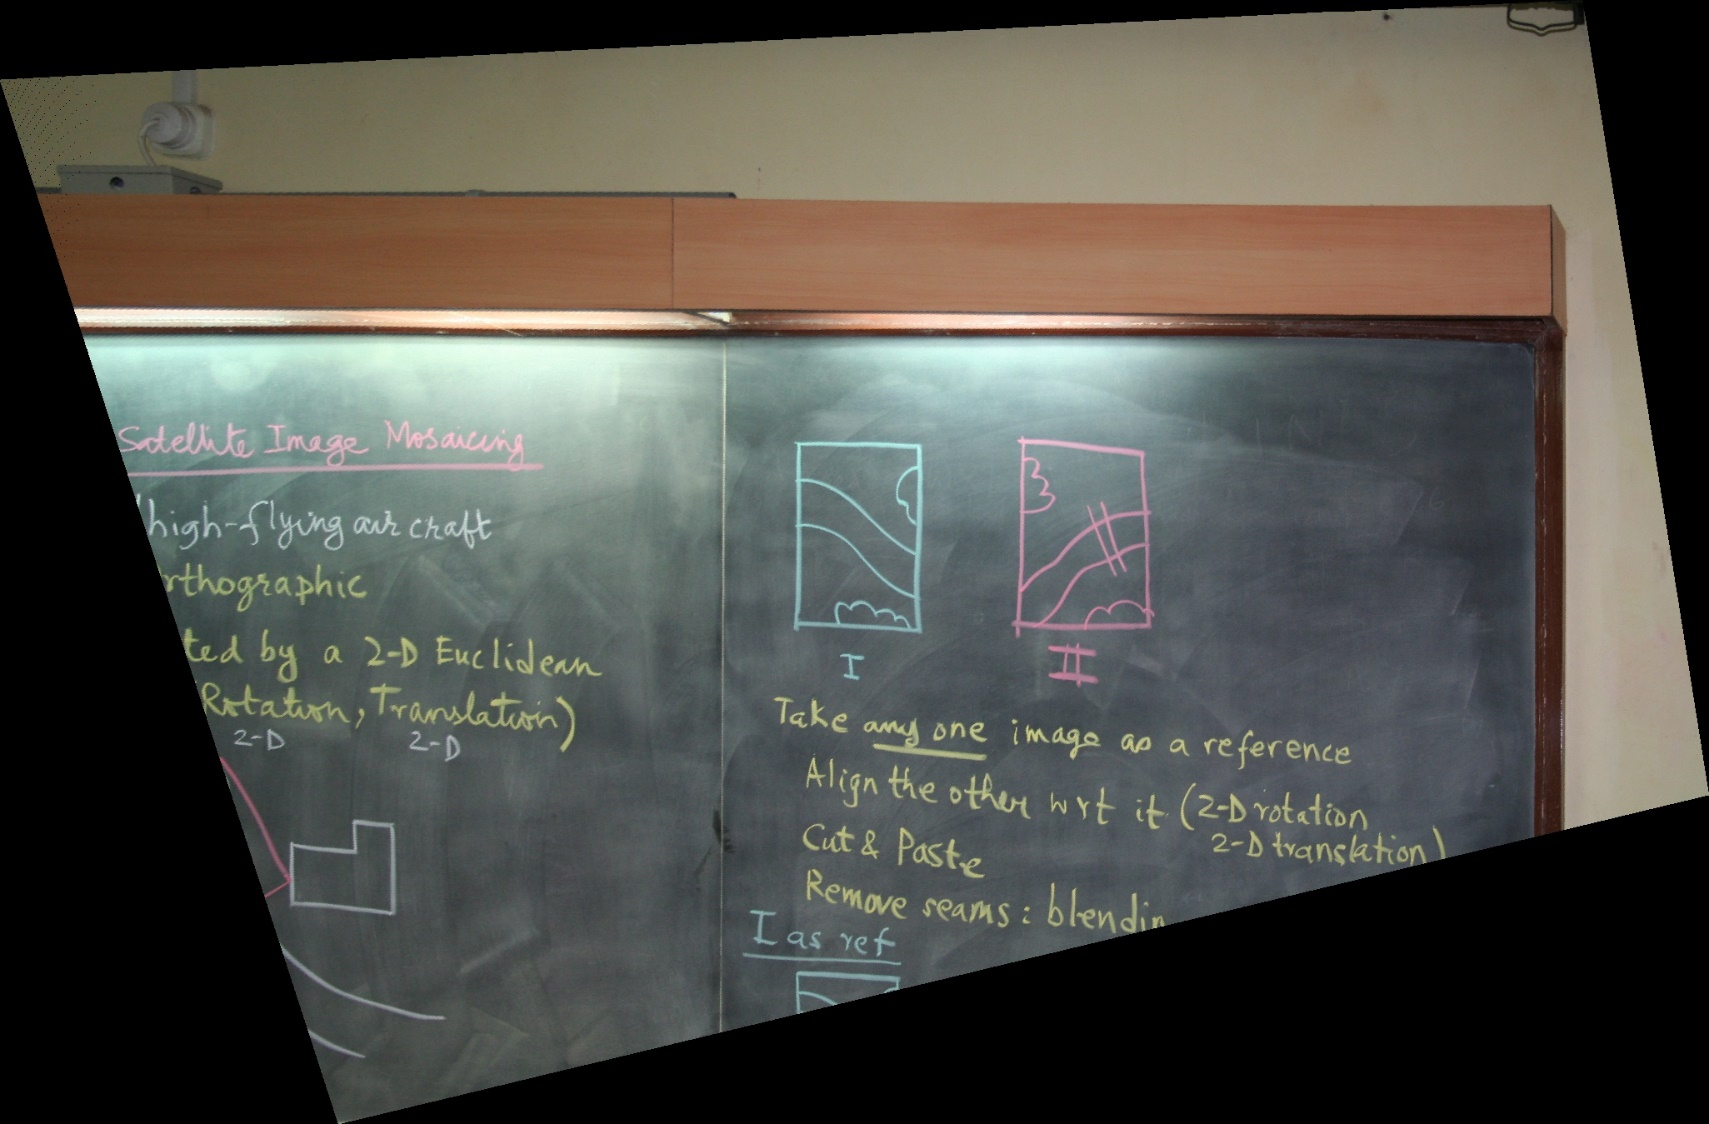 Satellite Image Mosaicing
high-flying air craft
rthographic
ted by a 2-D Euclidean
(Rotation, Translation)
2-D 2-D
I II
Take any one image as a reference
Align the other wrt it (2-D rotation
2-D translation)
Cut & Paste
Remove seams : blendin
I as ref